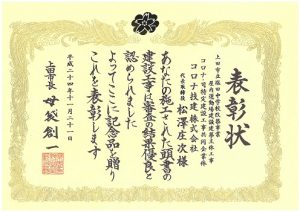 表彰状
上田市立塩田中学校改築事業
屋内運動場建設建築主体工事
コロナ・司特定建設工事共同企業体
コロナ技建株式会社
代表取締役 松澤庄次様
あなたの施工された頭書の
建設工事は審査の結果優良と
認められました
よってここに記念品を贈り
これを表彰します
平成二十四年十一月二十一日
上田市長 母袋創一